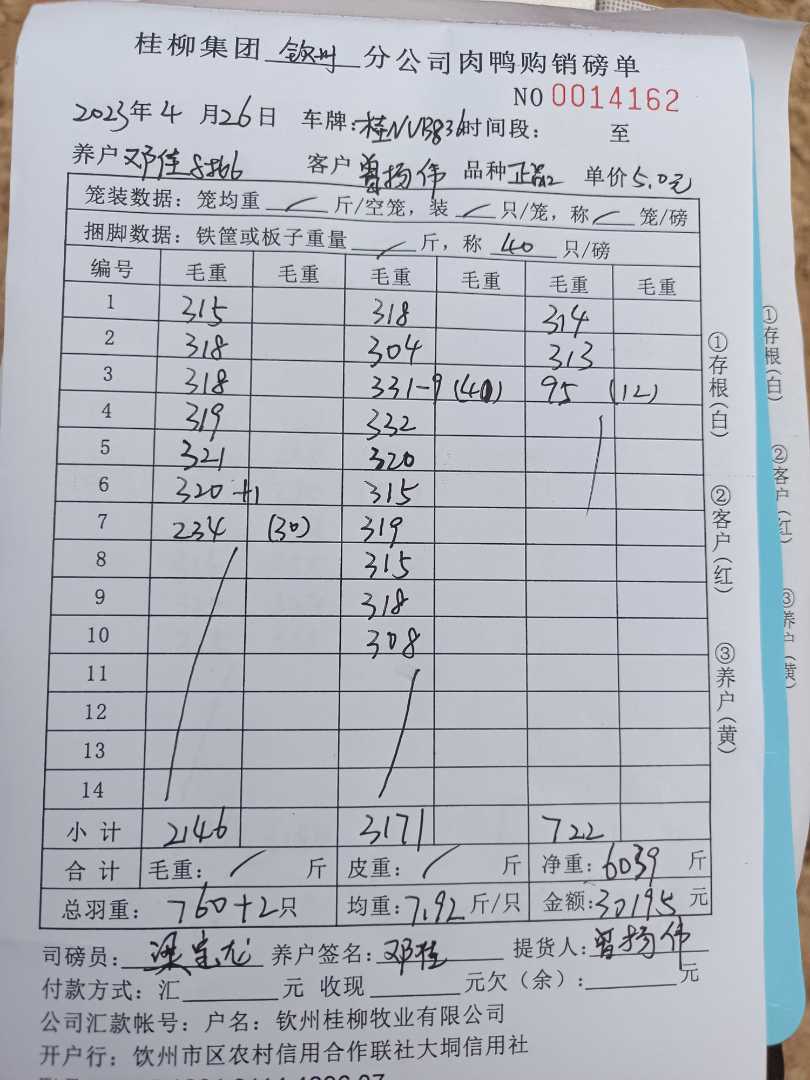 桂柳集团 钦州 分公司肉鸭购销磅单
NO 0014162
2023年4月26日 车牌:桂NVB836时间段: 至
养户 邓佳 客户 曾扬伟 品种 正品 单价5.0元
笼装数据:笼均重 / 斤/空笼,装 / 只/笼,称 / 笼/磅
捆脚数据:铁筐或板子重量 / 斤,称 40 只/磅
编号 毛重 毛重 毛重 毛重 毛重 毛重
1 315 318 314
2 318 304 313
3 318 331-9 (40) 95 (12)
4 319 332
5 321 320
6 320 +1 315
7 234 (30) 319
8 315
9 318
10 308
11
12
13
14
小计 2146 3171 722
合计 毛重: / 斤 皮重: / 斤 净重:6039 斤
总羽重:760+2只 均重:7.92斤/只 金额:30195元
司磅员:梁 龙 养户签名:邓桂 提货人:曾扬伟
付款方式:汇 元 收现 元欠(余): 元
公司汇款帐号:户名:钦州桂柳牧业有限公司
开户行:钦州市区农村信用合作联社大垌信用社
①存根(白)
②客户(红)
③养户(黄)
①存根(白)
②客户(红)
③养户(黄)